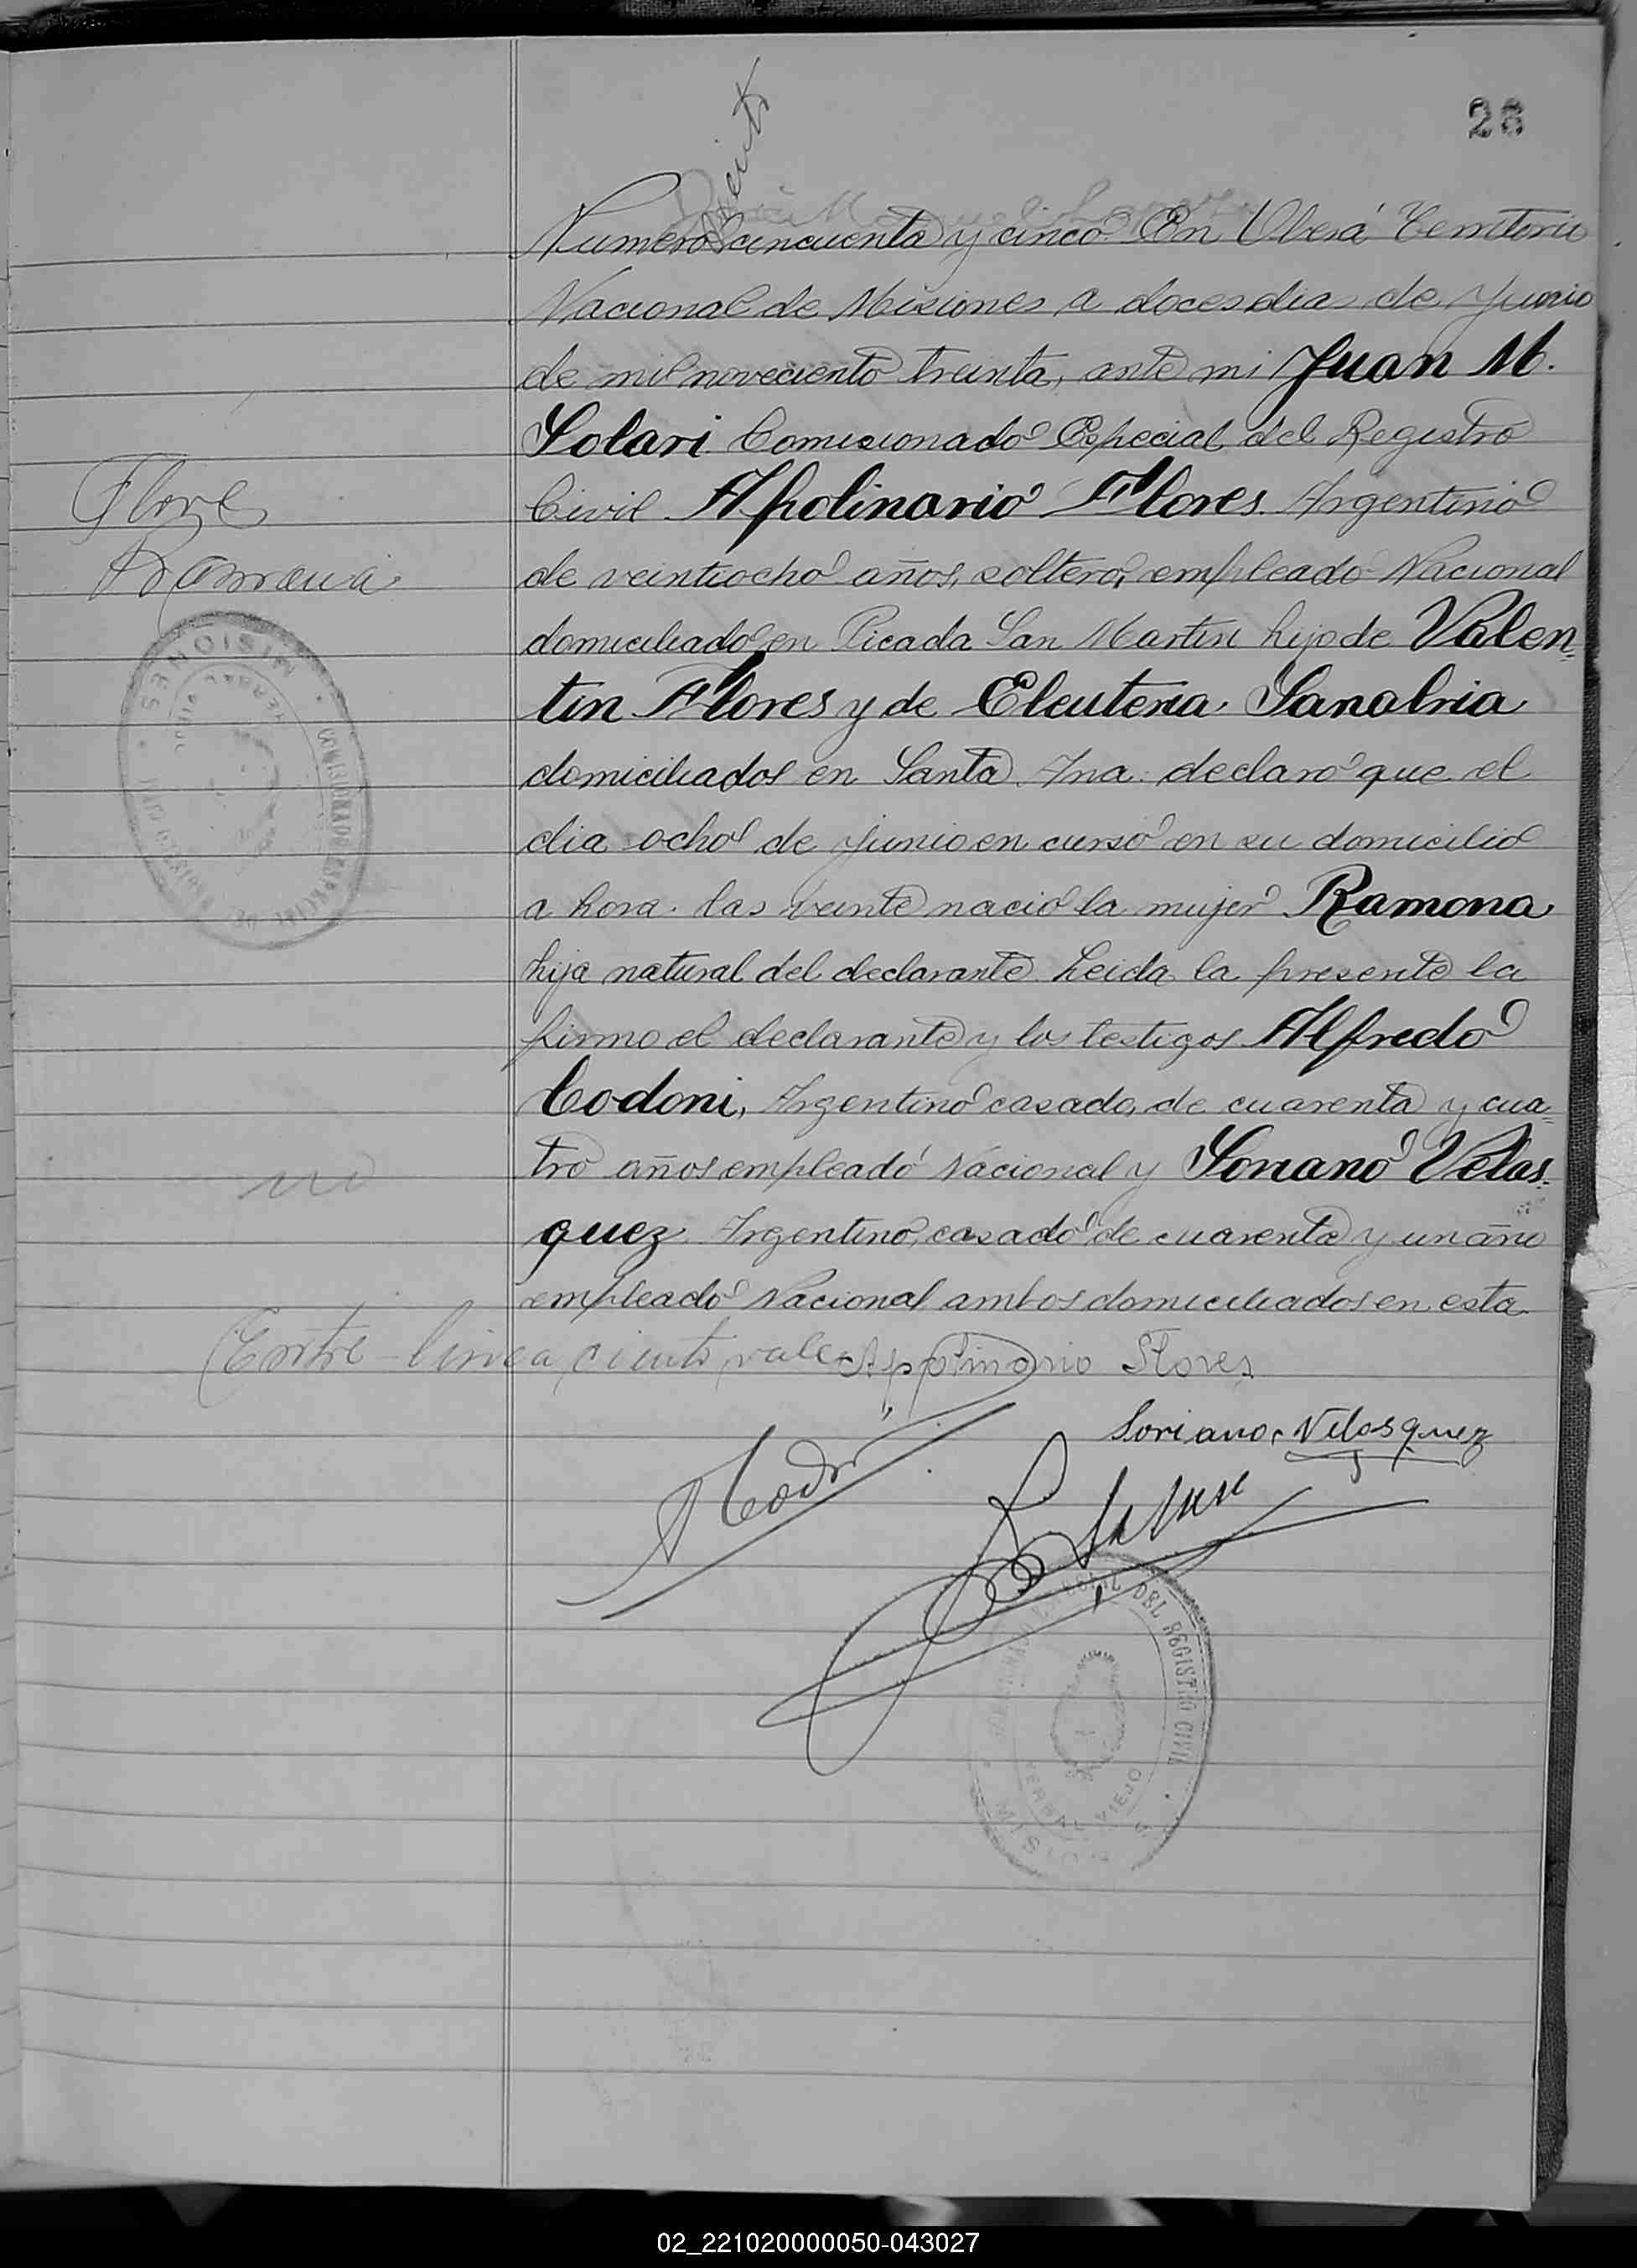 28
ciento
Numero cincuenta y cinco. En Oberá Territorio
Nacional de Misiones a doces dias de Junio
de mil noveciento treinta, ante mi Juan M.
Solari Comisionado Especial del Registro
Civil Apolinario Flores. Argentino
de veintiocho años, soltero, empleado Nacional
domiciliado en Picada San Martin hijo de Valen=
tin Flores y de Eleuteria Sanabria
domiciliados en Santa Ana: declaro que el
dia ocho de junio en curso en su domicilio
a hora las veinte nació la mujer Ramona
hija natural del declarante Leida la presente la
firmo el declarante y los testigos Alfredo
Codoni, Argentino casado, de cuarenta y cua=
tro años empleado Nacional y Soriano Velas=
quez Argentino, casado de cuarenta y un año
empleado Nacional ambos domiciliados en esta
Flores
Ramona
MISIONES
COMISIONADO ESPECIAL DEL REGISTRO CIVIL
YERBAL VIEJO
Entre-linea, ciento, vale Appolinario Flores
Soriano Velasquez
DEL REGISTRO CIVIL
YERBAL VIEJO
MISIONES
02_221020000050-043027